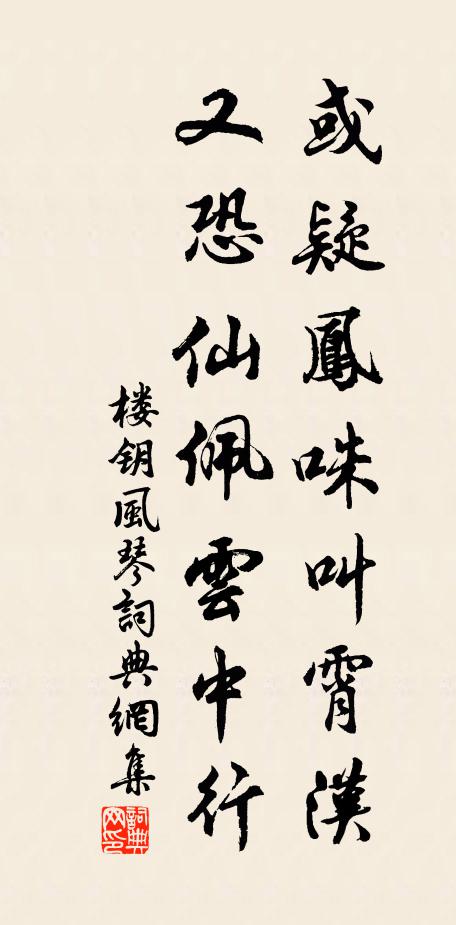 或疑鳳咮叫霄漢
又恐仙佩雲中行
楼钥風琴詞典網集
詞典網印